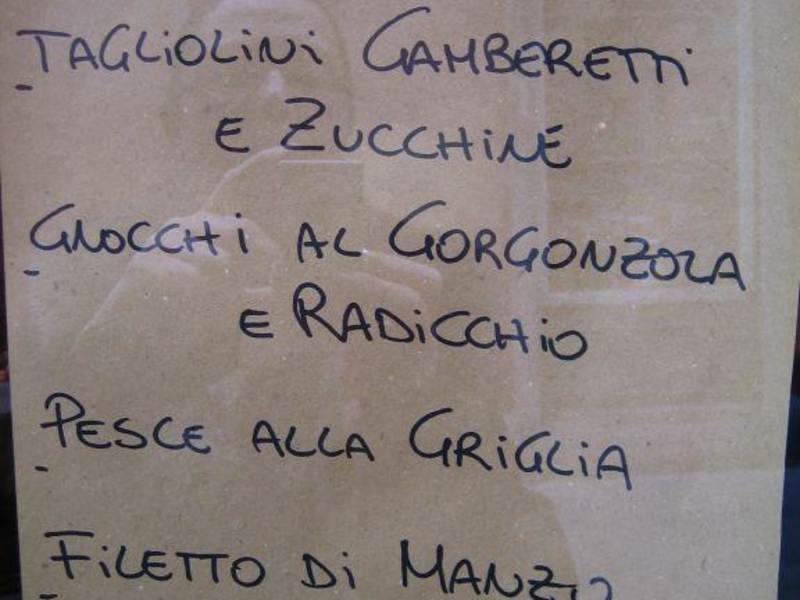 TAGLIOLINI GAMBERETTI
E ZUCCHINE
GNOCCHI AL GORGONZOLA
E RADICCHIO
PESCE ALLA GRIGLIA
FILETTO DI MANZO